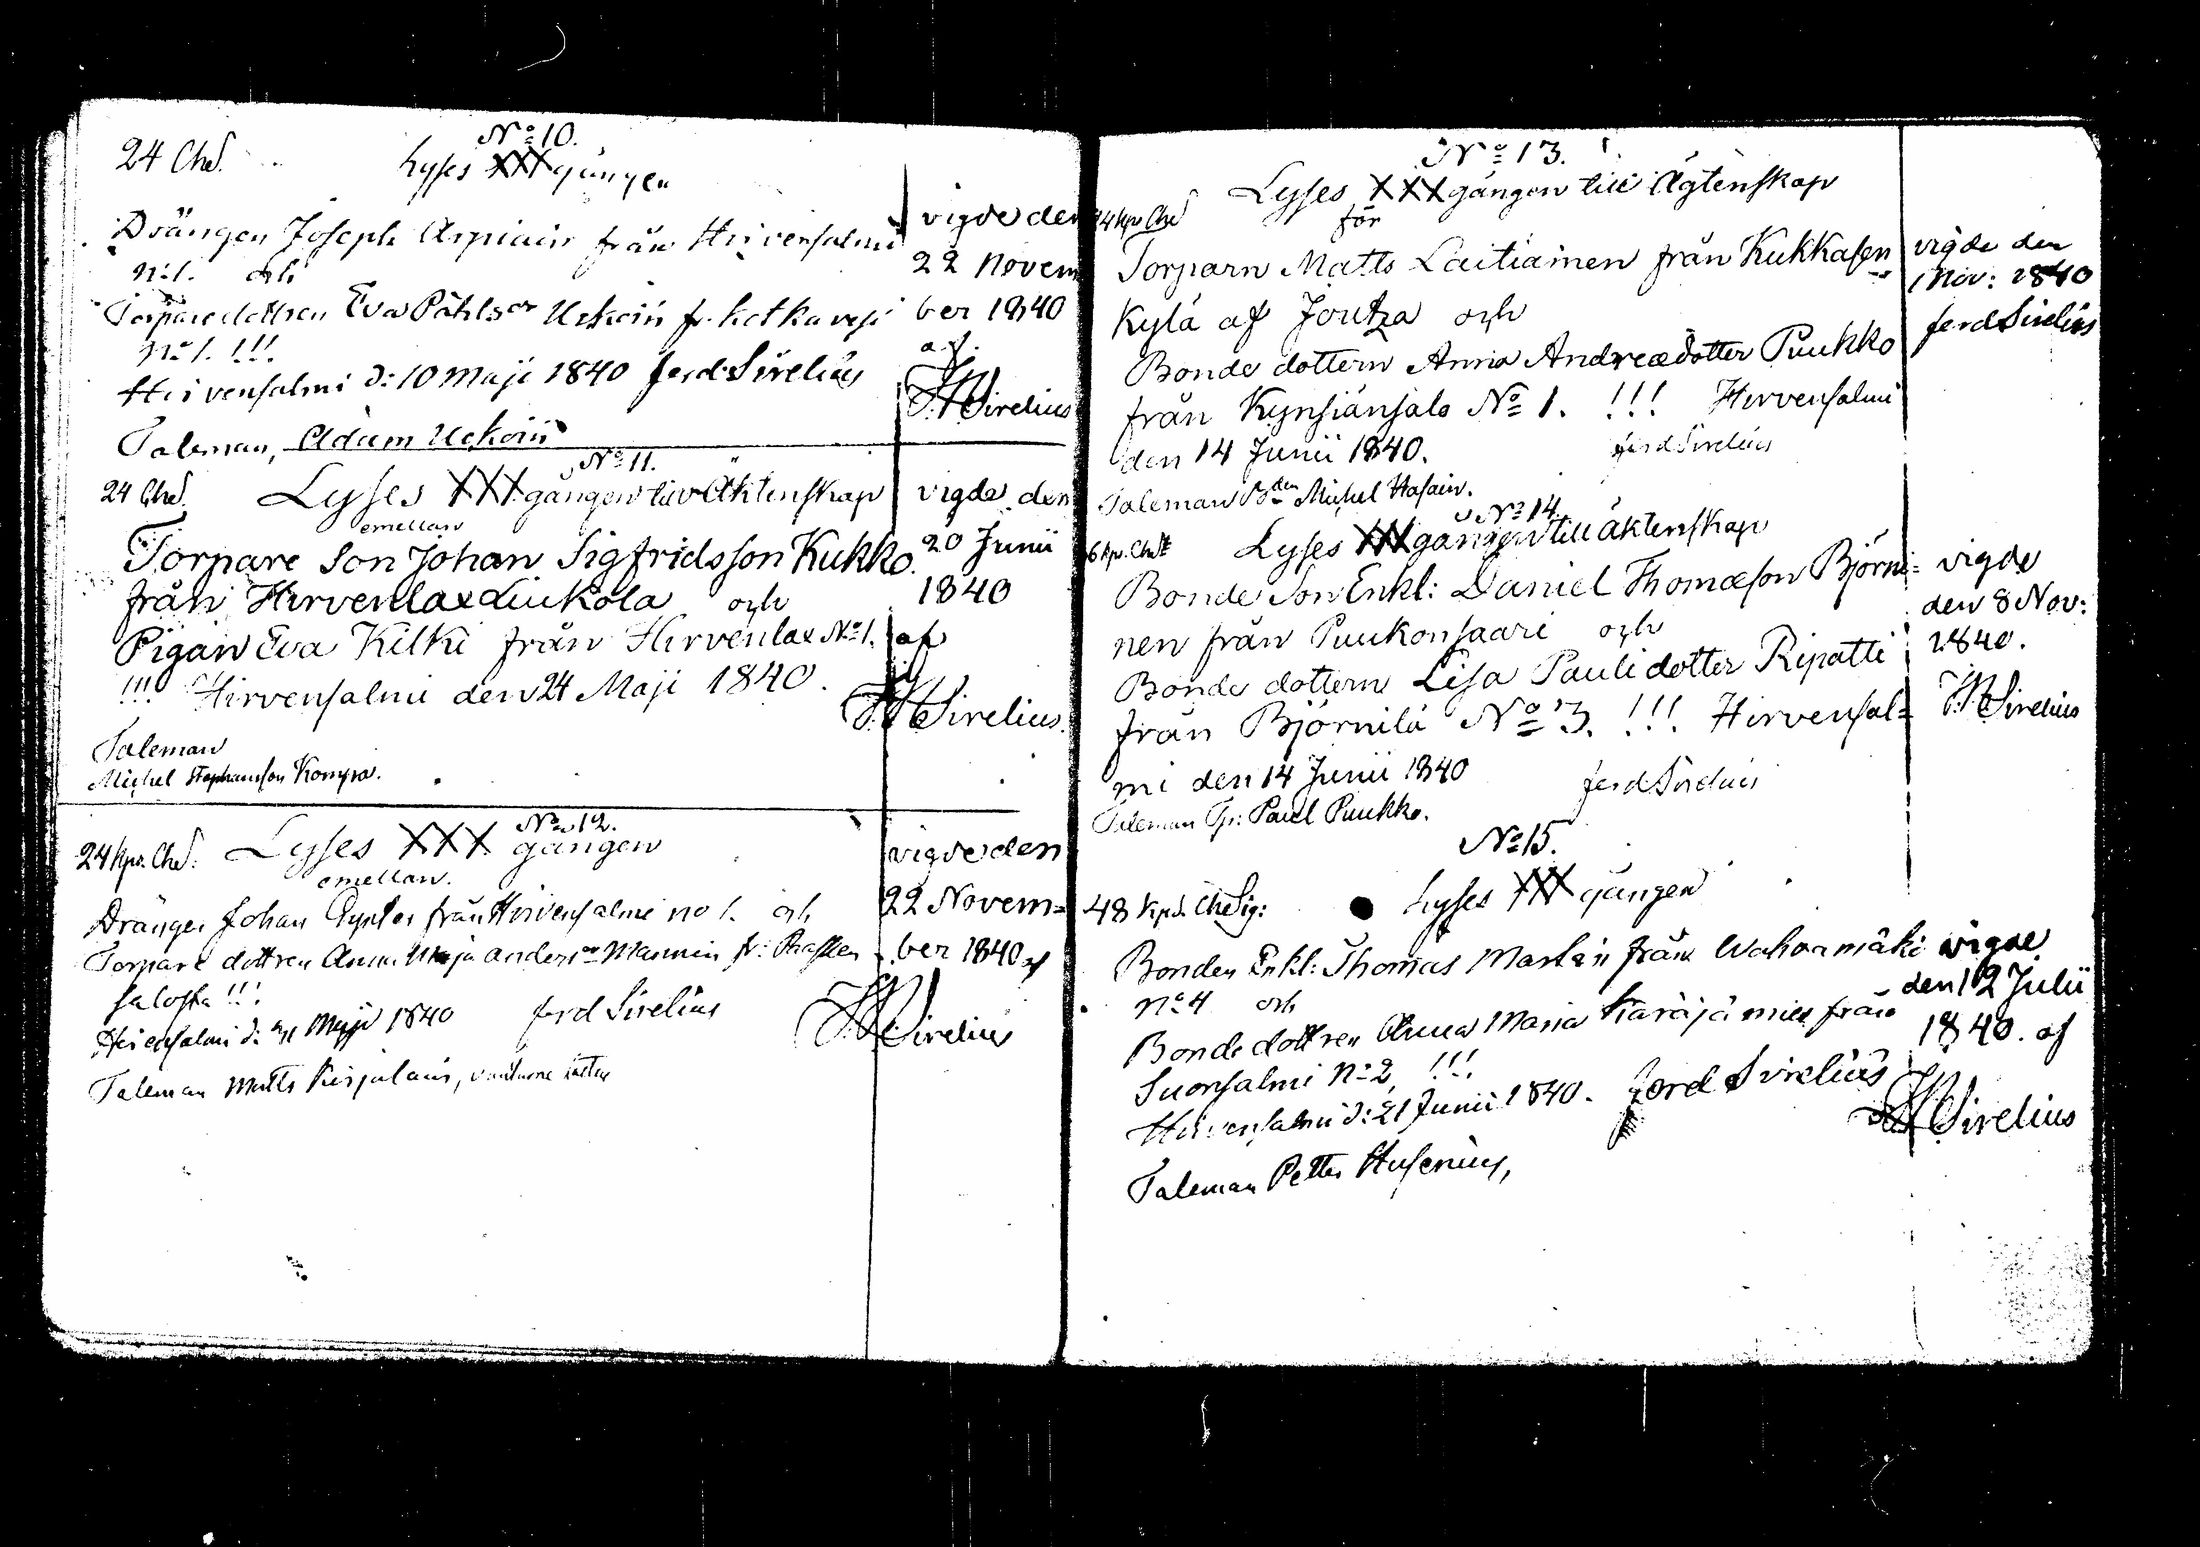 No 10.
24 Chd.
Lyses XXX gången
Drängen Joseph Arpiain från Hirvensalmi
No 1. och
Torparedottren Eva Påhlsdr Uckoin fr.
No 1. !!!
Hirvensalmi d: 10 Maji 1840 ferd Sirelius
Taleman, Adam Uckoin
vigde den
22 Novem
ber 1840
af
Sirelius
No 11.
24 Chd.
Lyses XXX gången till Äktenskap
emellan
Torpare Son Johan Sigfridsson Kukko
från Hirvenlax Liukola och
Pigan Eva Kilki från Hirvenlax No 1.
!!! Hirvensalmi den 24 Maji 1840.
Taleman
Michel Stephansson Kompa.
vigde den
20 Junii
1840
af
Sirelius.
No 12.
24 kps. Chd:
Lyses XXX gången
emellan.
Drängen Johan från Hirvensalmi no 1. och
Torpare dottren Anna Maja Anders dr Mannin fr:
salosta !!!
Hirvensalmi d: Maji 1840 ferd Sirelius
Taleman Matts
vigde den
22 Novem=
ber 1840 af
Sirelius
No 13.
24 kps Chd
Lyses XXX gången till Ägtenskap
för
Torparn Matts Laitiainen från Kukkasen
Kylä af Joutza och
Bonde dottern Anna Andreædotter Puukko
från Kynsiänsalo No 1. !!! Hirvensalmi
den 14 Junii 1840. ferd Sirelius
Taleman Bden Michel Hasain.
vigde den
1 Nov: 1840
ferd Sirelius
No 14.
Lyses XXX gången till äktenskap
Bonde Son Enkl: Daniel Thomæson Björni=
nen från Puukonsaari och
Bonde dottern Lisa Pauli dotter Ripatti
från Björnilä No 3. !!! Hirvensal=
mi den 14 Junii 1840 ferd Sirelius
Taleman Tp: Paul Puukko.
vigde
den 8 Nov:
1840.
Sirelius
No 15.
48 kps. Chd Sig:
Lyses XXX gången
Bonden Enkl: Thomas Markin från Wahvamäki
No 4 och
Bonde dottren Anna Maria Käräjämies från
Suonsalmi No 2 !!!
Hirvensalmi d: 21 Junii 1840. ferd Sirelius
Taleman Petter Husenius,
vigde
den 12 Julii
1840. af
Sirelius